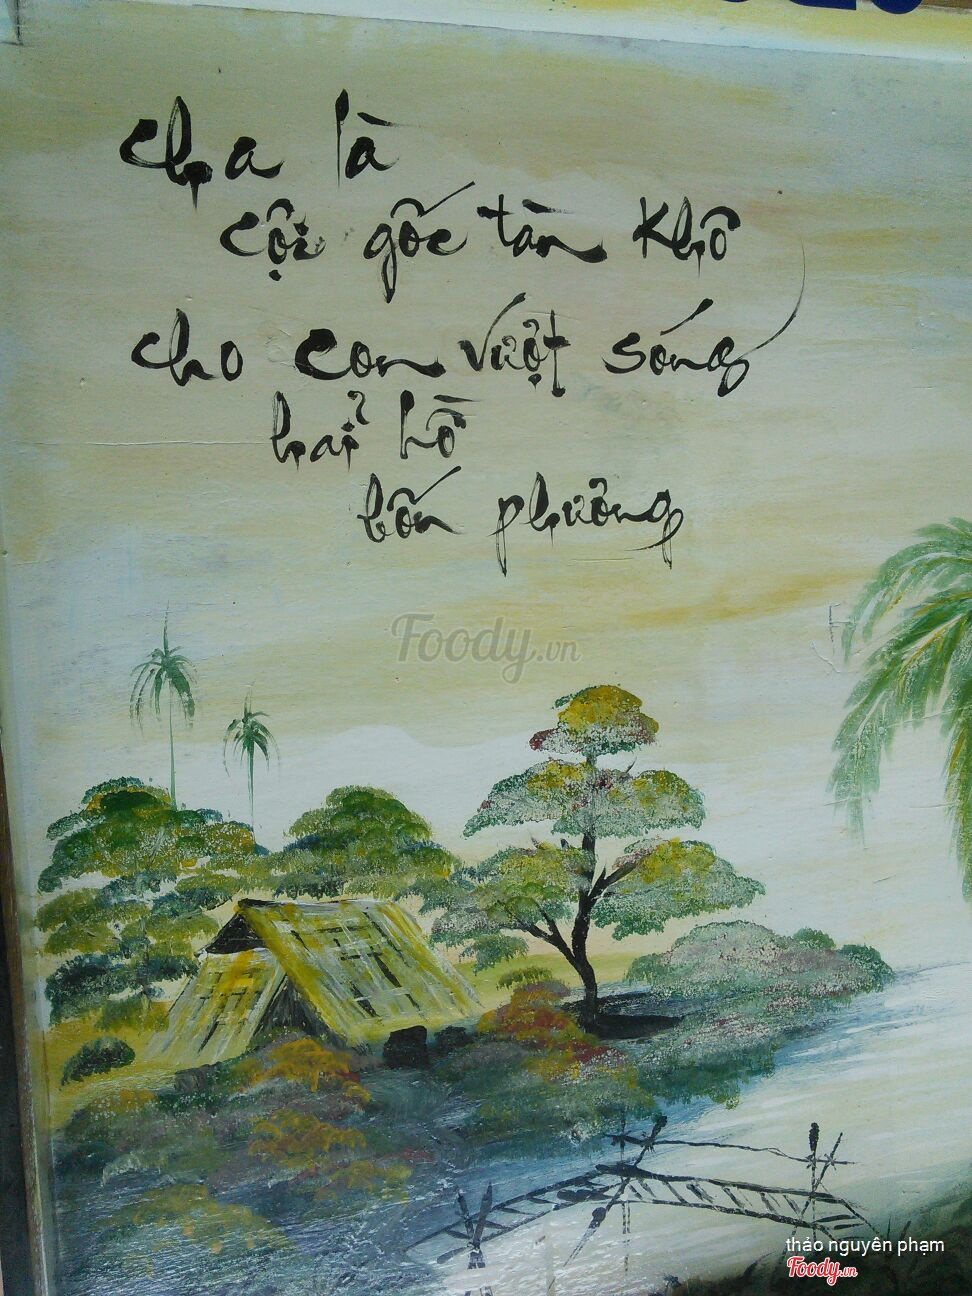 cha là
cội gốc tàn khô
cho con vượt sóng
hải hồ
bốn phương
Foody.vn
thảo nguyên phạm
Foody.vn